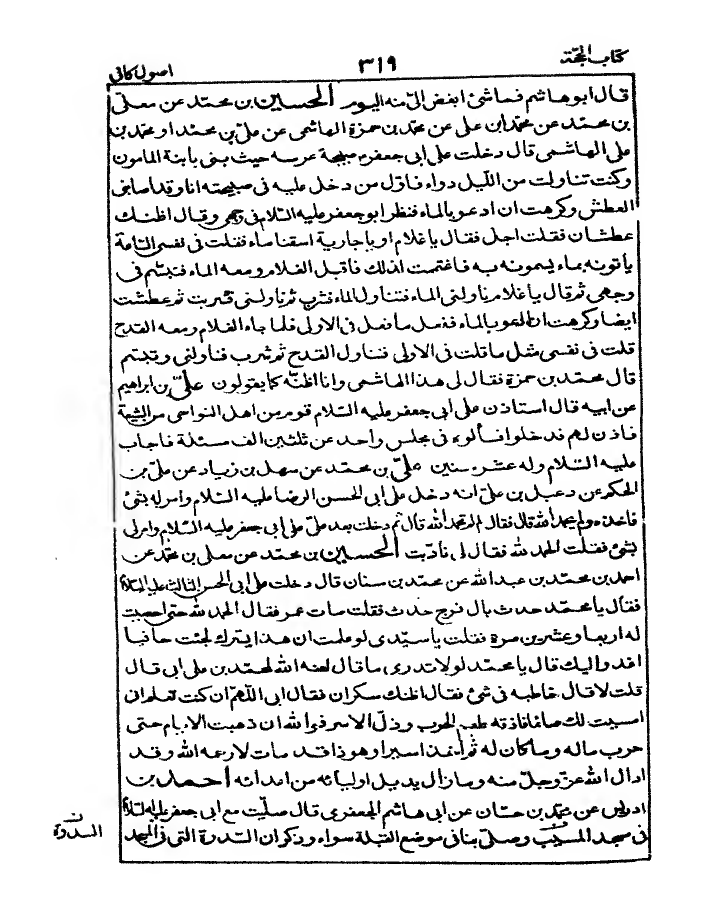 كتاب الحجّة
٣١٩
اصول كافى
قال ابو هاشم فما شئ ابغض الىّ منه اليوم الحسين بن محمّد عن معلّى
بن محمّد عن محمّد ابن على عن محمّد بن حمزة الهاشمى عن علىّ بن محمّد او محمّد بن
علىّ الهاشمى قال دخلت على ابى جعفر صبيحة عرسه حيث بنى بابنة المامون
وكنت تناولت من اللّيل دواء فاوّل من دخل عليه فى صبيحته انا وقد اصابنى
العطش وكرهت ان ادعو بالماء فنظر ابو جعفر عليه السّلام فى وجهى وقال اظنّك
عطشان فقلت اجل فقال يا غلام او يا جارية اسقنا ماء فقلت فى نفسى السّاعة
ياتونه بماء يسمونه به فاغتممت لذلك فاقبل الغلام ومعه الماء فتبسّم فى
وجهى ثم قال يا غلام ناولنى الماء فتناول الماء فشرب ثم ناولنى فشربت ثم عطشت
ايضا وكرهت ان ادعو بالماء ففعل ما فعل فى الاولى فلما جاء الغلام ومعه القدح
قلت فى نفسى مثل ما قلت فى الاولى فتناول القدح ثم شرب فناولنى وتبسّم
قال محمّد بن حمزة فقال لى هذا الهاشمى وانا اظنّه كما يقولون علىّ بن ابراهيم
عن ابيه قال استاذن على ابى جعفر عليه السّلام قوم من اهل النواحى من الشيعة
فاذن لهم فدخلوا فسألوه فى مجلس واحد عن ثلثين الف مسئلة فاجاب
عليه السّلام وله عشر سنين علىّ بن محمّد عن سهل بن زياد عن علىّ بن
الحكم عن دعبل بن علىّ انه دخل على ابى الحسن الرضا عليه السّلام وامر له بشئ
فاخذه ولم يحمد الله قال فقال لم لم تحمد الله قال ثم دخلت بعد على ابى جعفر عليه السّلام وامر لى
بشئ فقلت الحمد لله فقال لى تادّبت الحسين بن محمّد عن معلى بن محمّد عن
احمد بن محمّد بن عبد الله عن محمّد بن سنان قال دخلت على ابى الحسن الثالث عليه السّلام
فقال يا محمّد حدث بال فرج حدث فقلت مات عمر فقال الحمد لله حتى احصيت
له اربعا وعشرين مرة فقلت يا سيّدى لو علمت ان هذا يسرّك لجئت حافيا
اعدو اليك قال يا محمّد او لا تدرى ما قال لعنه الله لمحمّد بن على ابى قال
قلت لا قال خاطبه فى شئ فقال اظنك سكران فقال ابى اللّهمّ ان كنت تعلم انى
امسيت لك صائما فاذقه طعم الحرب وذلّ الاسر فو الله ان ذهبت الايام حتى
حرب ماله وما كان له ثم اخذ اسيرا وهوذا قد مات لا رحمه الله وقد
ادال الله عزّ وجلّ منه وما زال يديل اوليائه من اعدائه احمد بن
ادريس عن محمّد بن حسّان عن ابى هاشم الجعفرى قال صلّيت مع ابى جعفر عليه السّلام
فى مسجد المسيّب وصلّى بنا فى موضع القبلة سواء وذكر ان السّدرة التى فى المسجد
السدرة